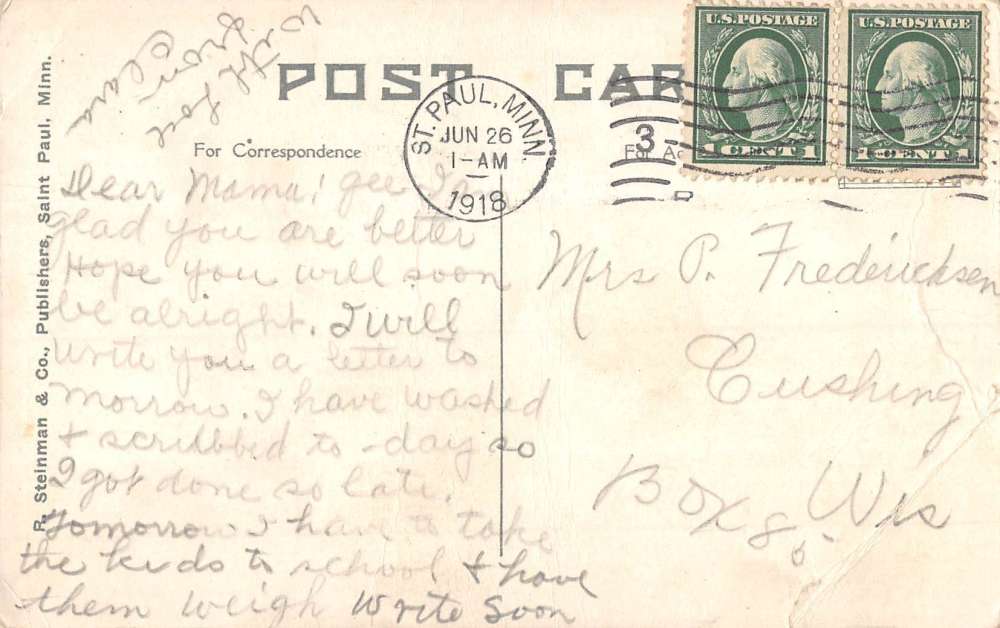 POST CAR
U.S. POSTAGE
1 CENT 1
U.S. POSTAGE
1 CENT 1
ST. PAUL, MINN
JUN 26
1-AM
1918
3
For Correspondence
For A
R. Steinman & Co., Publishers, Saint Paul. Minn.
Dear Mama! gee I'm
glad you are better
Hope you will soon
be alright. I will
write you a letter to
morrow. I have washed
& scrubbed to-day so
I got done so late.
Tomorrow I have to take
the kids to school & have
them weigh Write Soon
with love
from
Clara
Mrs P. Fredericksen
Cushing
Box 8. Wis